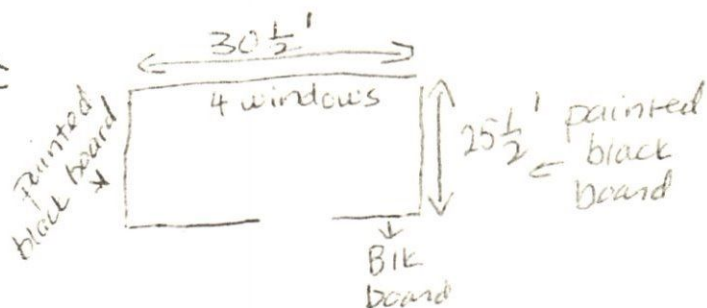 30 1/2'
4 windows
painted
black board
25 1/2'
painted
black
board
Blk
board